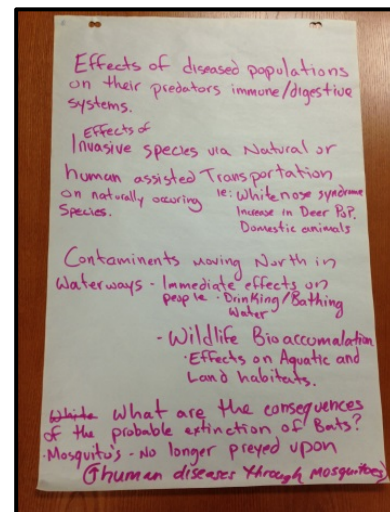 Effects of diseased populations
on their predators immune/digestive
systems.
Effects of
Invasive species via Natural or
human assisted Transportation
on naturally occuring ie: White nose syndrome
Species. Increase in Deer Pop.
Domestic animals
Contaminents moving North in
Waterways - Immediate effects on
people · Drinking/Bathing
Water
- Wildlife Bioaccumalation
· Effects on Aquatic and
Land habitats.
White What are the consequences
of the probable extinction of Bats?
· Mosquito's - No longer preyed upon
(↑human diseases through mosquitoes)